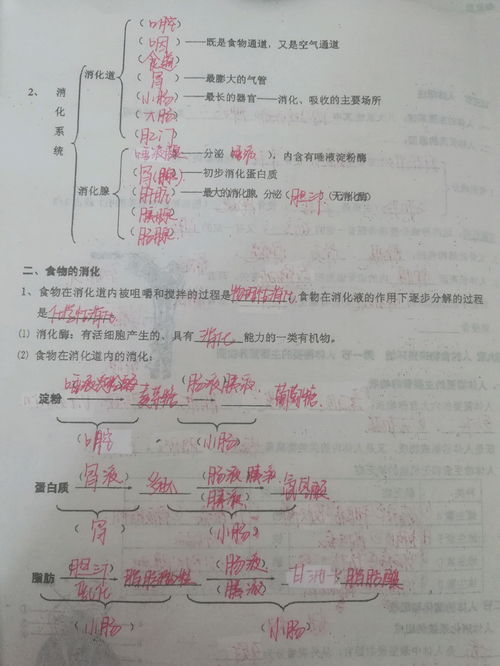 2、消化系统
消化道
(口腔)
(咽)——既是食物通道，又是空气通道
(食道)
(胃)——最膨大的气管
(小肠)——最长的器官——消化、吸收的主要场所
(大肠)
(肛门)
消化腺
(唾液腺——分泌(唾液)，内含有唾液淀粉酶
(胃腺)——初步消化蛋白质
(肝脏)——最大的消化腺，分泌(胆汁)(无消化酶)
(胰腺)
(肠腺)
二、食物的消化
1、食物在消化道内被咀嚼和搅拌的过程是物理性消化，食物在消化液的作用下逐步分解的过程
是化学性消化
(1) 消化酶：有活细胞产生的、具有消化能力的一类有机物。
(2) 食物在消化道内的消化：
唾液淀粉酶 (肠液 胰液
淀粉 麦芽糖 葡萄糖
(口腔) (小肠)
(胃液) (肠液 胰液
蛋白质
(胰液)
(胃) (小肠)
胆汁 (肠液)
脂肪 脂肪微粒 甘油+脂肪酸
乳化 (胰液)
(小肠) (小肠)